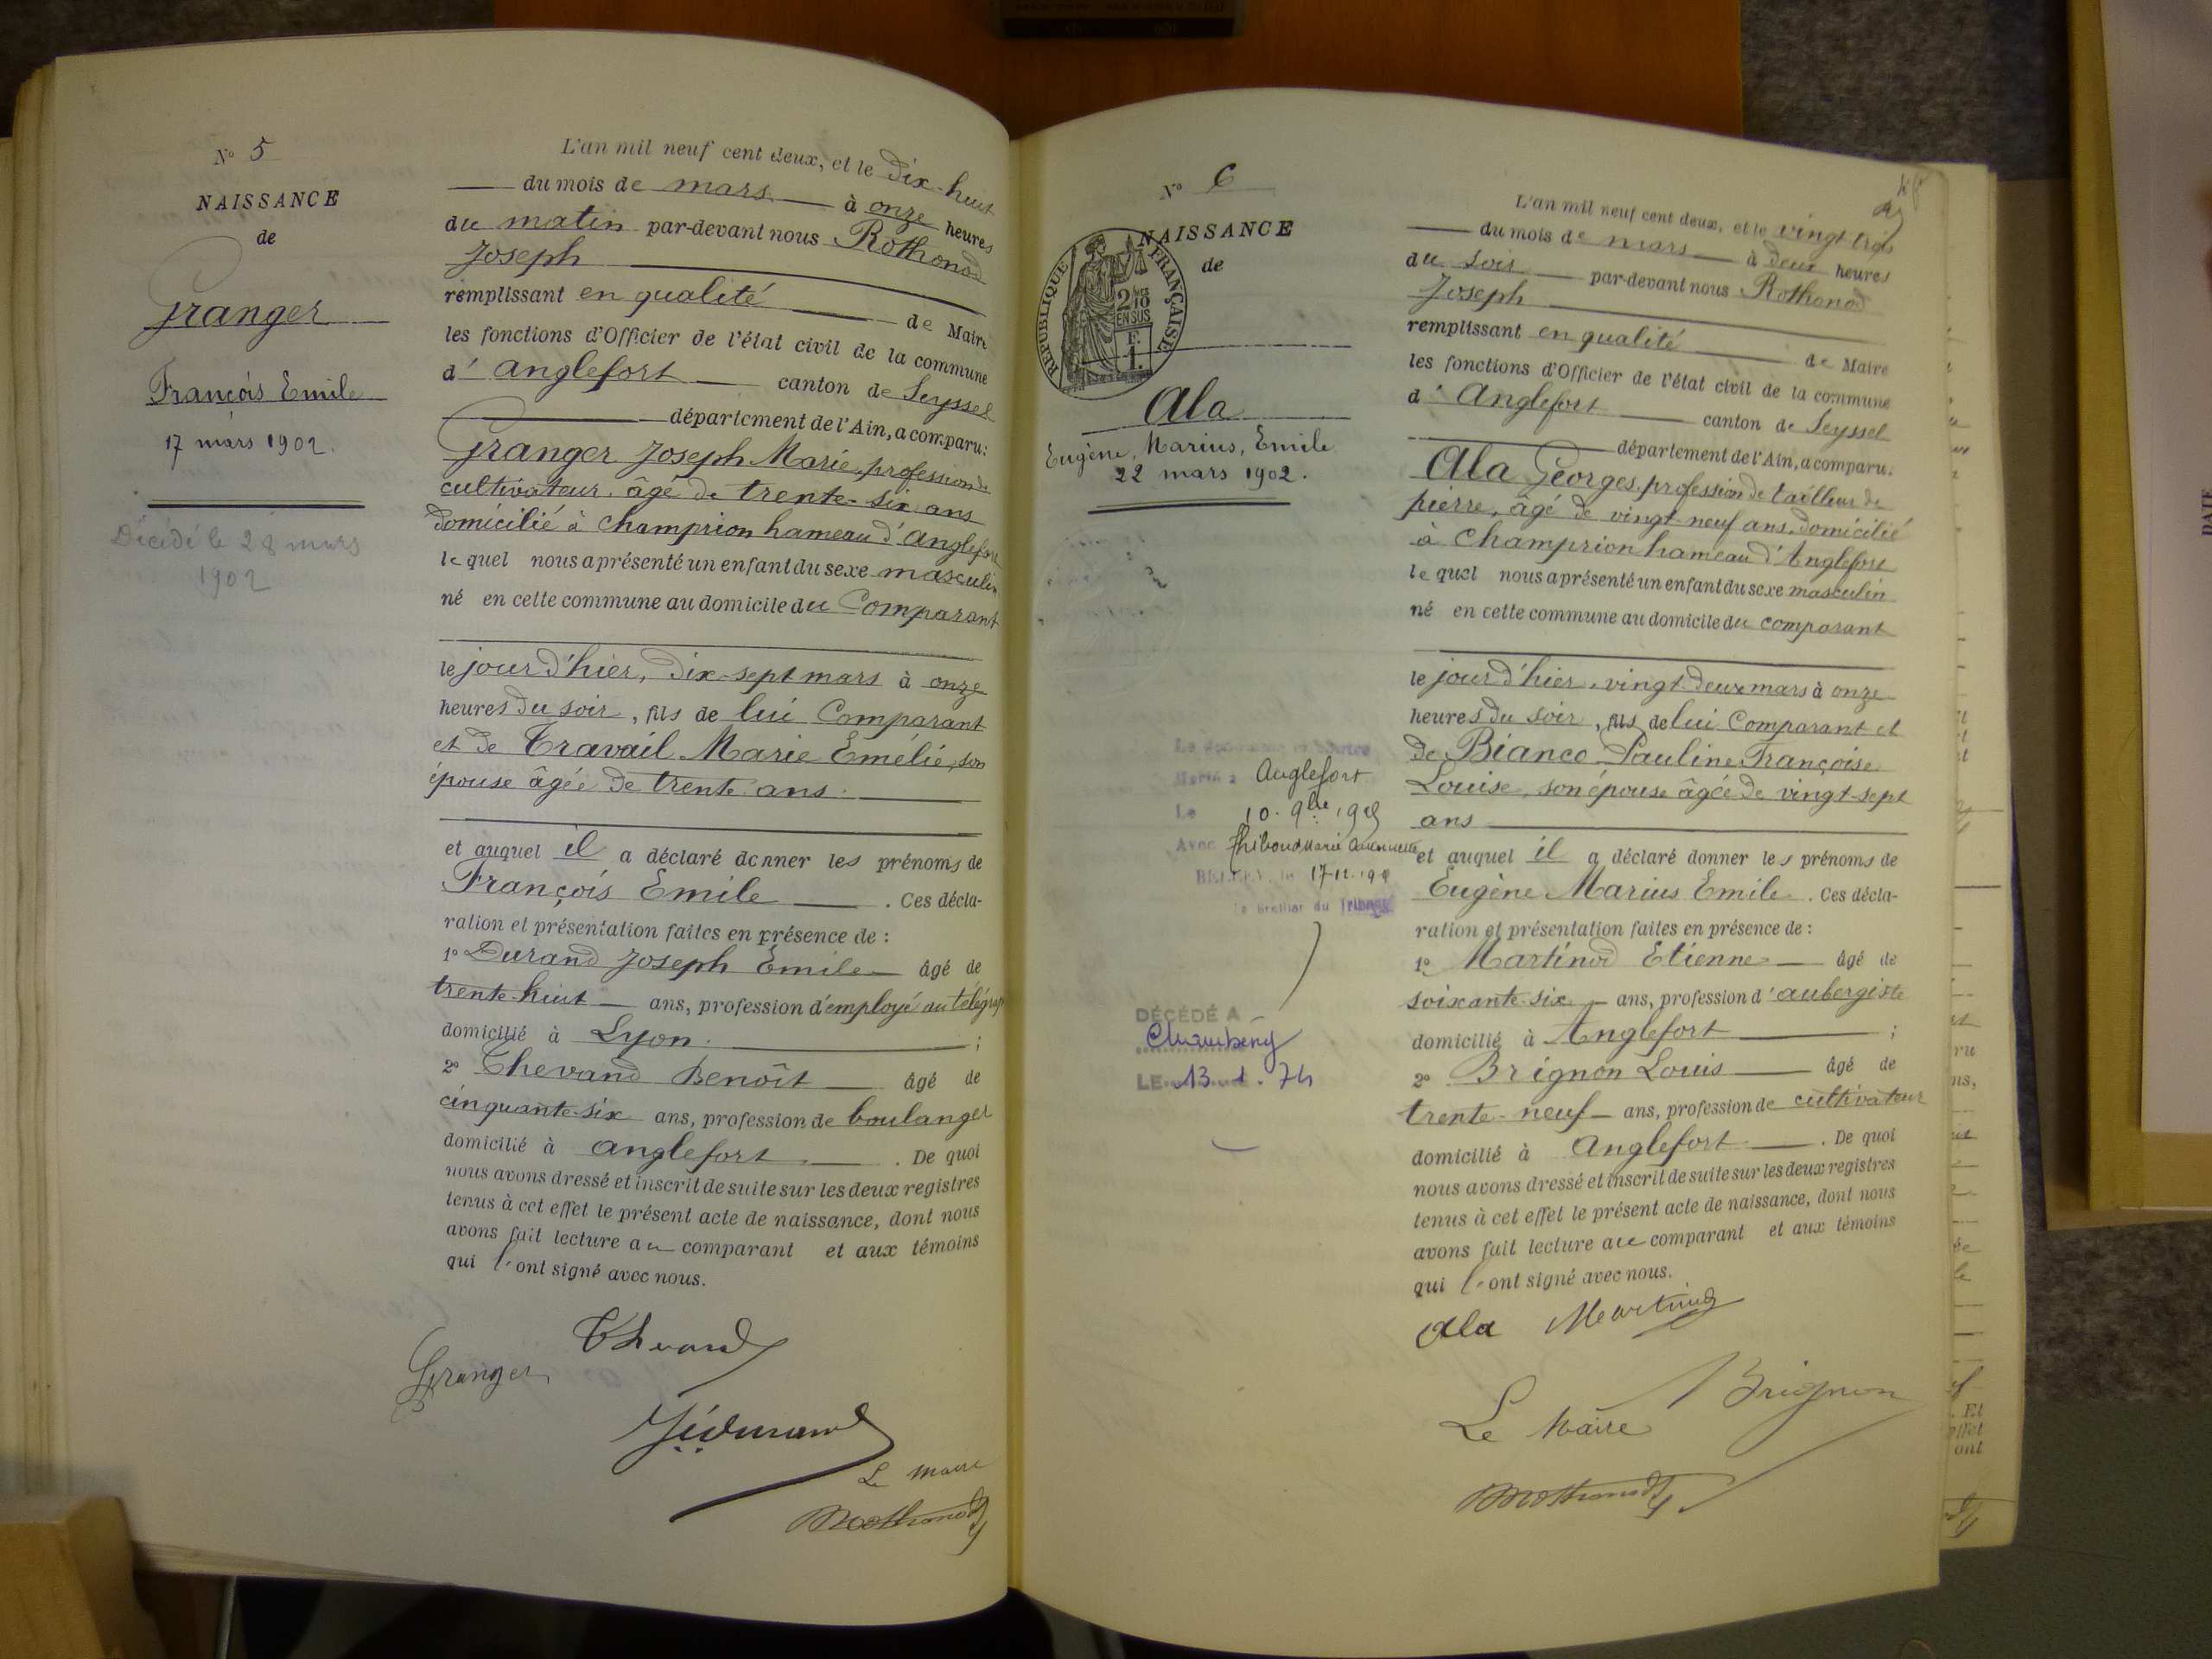 N° 5
NAISSANCE
de
Granger
François Emile
17 mars 1902.
Décédé le 28 mars
1902
L'an mil neuf cent deux, et le dix-huit
du mois de mars à onze heures
du matin par-devant nous Rothonod
Joseph
remplissant en qualité de Maire
les fonctions d'Officier de l'état civil de la commune
d' Anglefort canton de Seyssel
département de l'Ain, a comparu:
Granger Joseph Marie, profession de
cultivateur, âgé de trente-six ans
domicilié à Champrion hameau d'Anglefort
lequel nous a présenté un enfant du sexe masculin
né en cette commune au domicile du Comparant
le jour d'hier, dix-sept mars à onze
heures du soir, fils de lui Comparant
et de Travail Marie Emélie, son
épouse âgée de trente ans.
et auquel il a déclaré donner les prénoms de
François Emile . Ces décla-
ration et présentation faites en présence de :
1° Durand Joseph Emile âgé de
trente-huit ans, profession d'employé au télégrap
domicilié à Lyon. ;
2° Thevand Benoît âgé de
cinquante-six ans, profession de boulanger
domicilié à Anglefort . De quoi
nous avons dressé et inscrit de suite sur les deux registres
tenus à cet effet le présent acte de naissance, dont nous
avons fait lecture au comparant et aux témoins
qui l'ont signé avec nous.
Granger
Le maire
N° 6
NAISSANCE
de
RÉPUBLIQUE FRANÇAISE
2/10
EN SUS
F.
1.
Ala
Eugène, Marius, Emile
22 mars 1902.
Anglefort
Le 10. 9bre
Avec Marie
Le Greffier du Tribunal
DÉCÉDÉ A
Chambéry
LE 13.1.74
L'an mil neuf cent deux, et le vingt trois
du mois de mars à deux heures
du soir par-devant nous Rothonod
Joseph
remplissant en qualité de Maire
les fonctions d'Officier de l'état civil de la commune
d' Anglefort canton de Seyssel
département de l'Ain, a comparu:
Ala Georges, profession de tailleur de
pierre, âgé de vingt-neuf ans, domicilié
à Champrion hameau d'Anglefort
lequel nous a présenté un enfant du sexe masculin
né en cette commune au domicile du comparant
le jour d'hier, vingt-deux mars à onze
heures du soir, fils de lui Comparant et
de Bianco Pauline Françoise
Louise, son épouse âgée de vingt-sept
ans
et auquel il a déclaré donner les prénoms de
Eugène Marius Emile . Ces décla-
ration et présentation faites en présence de :
1° Martinod Etienne âgé de
soixante-six ans, profession d'aubergiste
domicilié à Anglefort ;
2° Brignon Louis âgé de
trente-neuf ans, profession de cultivateur
domicilié à Anglefort . De quoi
nous avons dressé et inscrit de suite sur les deux registres
tenus à cet effet le présent acte de naissance, dont nous
avons fait lecture au comparant et aux témoins
qui l'ont signé avec nous.
Ala Martinod
Brignon
Le Maire
DATE